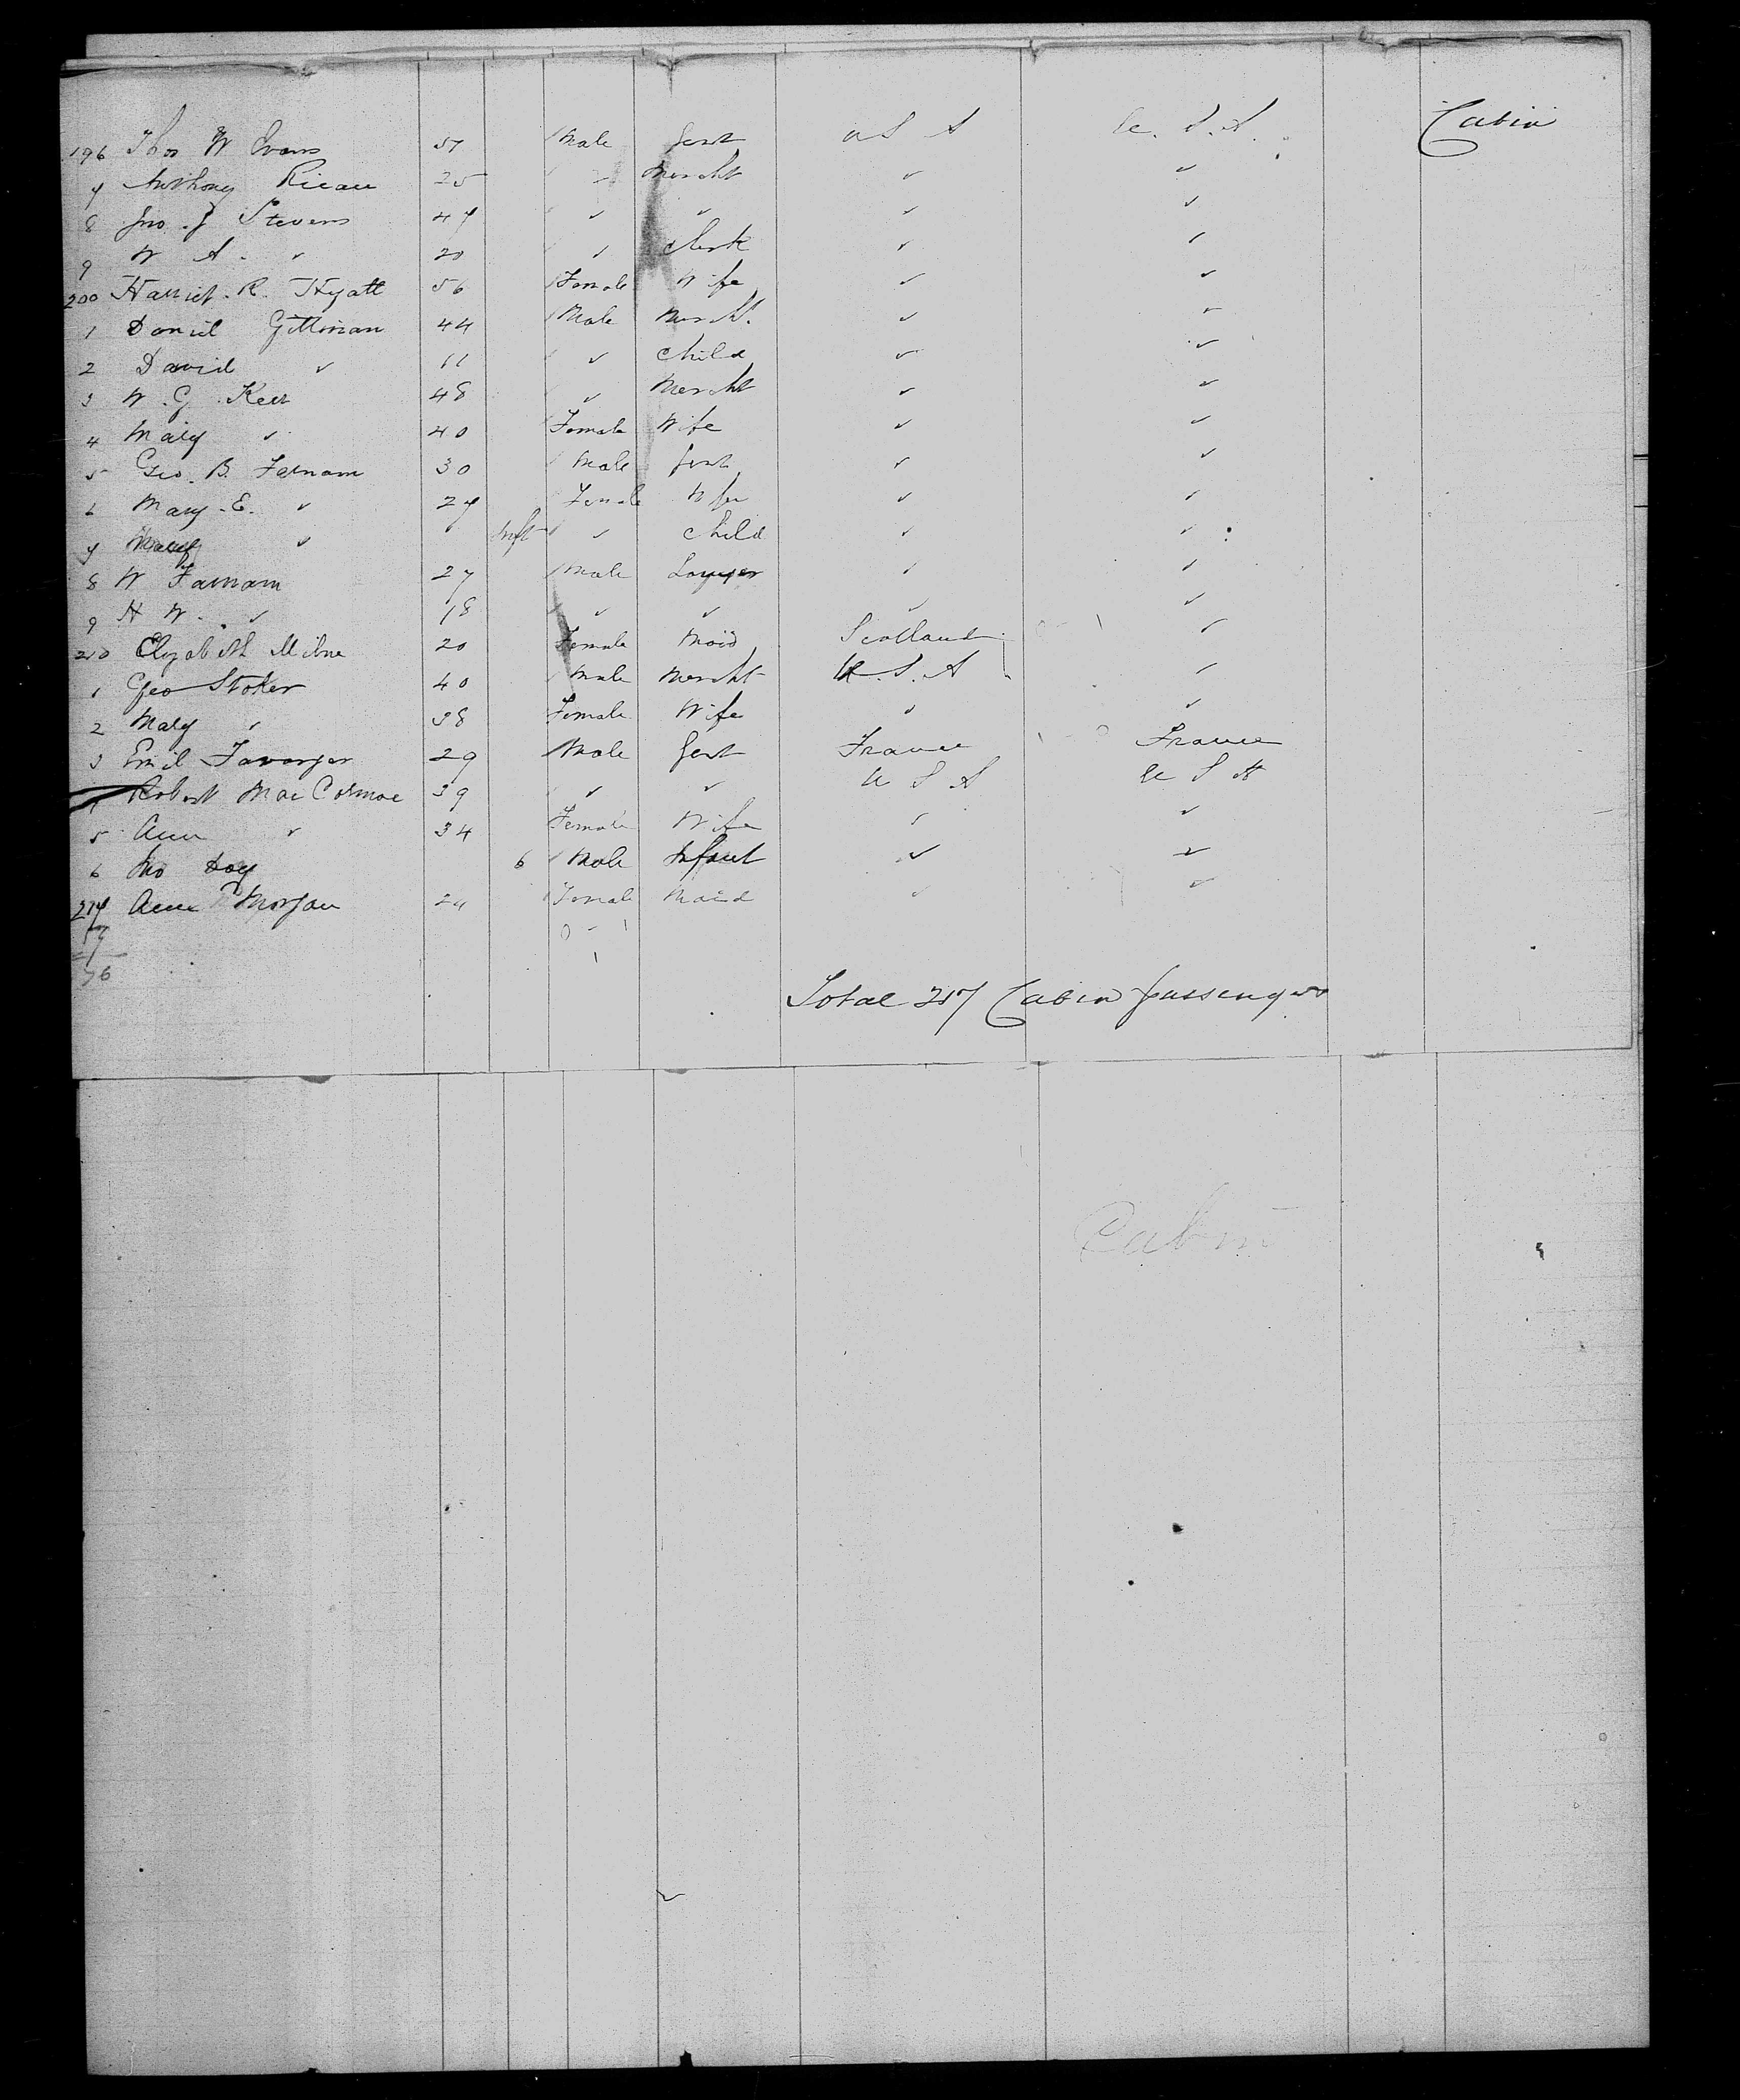 196 Thos W Evans 57 Male Gent U S A U. S. A. Cabin
7 Anthony 25 " Mercht " "
8 Jno. J Stevens 47 " " " "
9 W A. " 20 " Clerk " "
200 Harriet. R. Hyatt 56 Female Wife " "
1 Daniel Gillman 44 Male Mercht. " "
2 David " 11 " Child " "
3 W. G. Kerr 48 " Mercht " "
4 Mary " 40 Female Wife " "
5 Geo. B. Farnam 30 Male Gent " "
6 Mary. E. " 27 Female Wife " "
7 " Inft " Child " "
8 W Farnam 27 Male Lawyer " "
9 H W. " 18 " " " "
210 Elizabeth Milne 20 Female Maid Scotland "
1 Geo Stoker 40 Male Mercht U. S. A "
2 Mary " 38 Female Wife " "
3 Emil 29 Male Gent France France
4 Robert Mac Cormac 39 " " U S A U S A
5 Ann " 34 Female Wife " "
6 6 Male Infant " "
217 Ann Morgan Female Maid " "
76
Total 217 Cabin passengers
Cabin